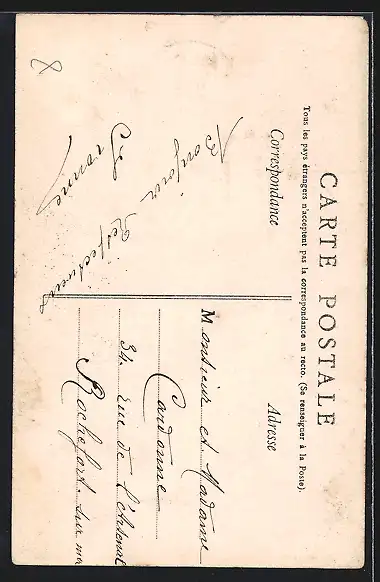 CARTE POSTALE
Tous les pays étrangers n'acceptent pas la correspondance au recto. (Se renseigner à la Poste).
Correspondance
Adresse
Bonjour
Respectueux
Monsieur et Madame
Cardonne
34 rue de l'Arsenal
Rochefort sur mer
8